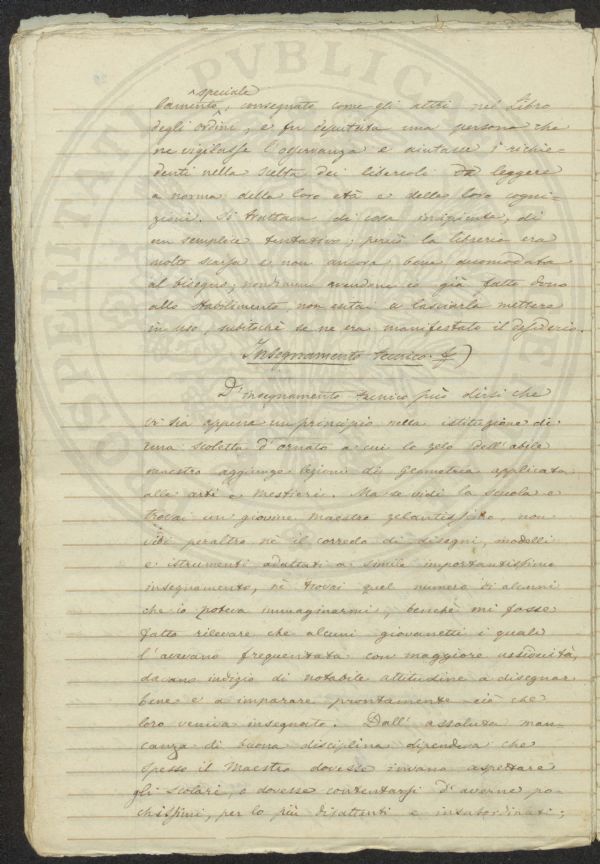 PROSPERITATI PVBLICAE
speciale
lamento, consegnato come gli altri nel Libro
degli ordini, e fu deputata una persona che
ne vigilasse l'osservanza e aiutasse i richie-
denti nella scelta dei libercoli da leggere
a norma della loro età e delle loro cogni-
zioni. Si trattava di cosa incipiente, di
un semplice tentativo; perciò la libreria era
molto scarsa e non ancora bene accomodata
al bisogno; nondimeno avendone io già fatto dono
allo Stabilimento non esitai a lasciarla mettere
in uso, subitochè se ne era manifestato il desiderio.
Insegnamento tecnico. f)
D'insegnamento tecnico può dirsi che
vi sia appena un principio nella istituzione di
una scoletta d'ornato a cui lo zelo dell'abile
maestro aggiunge lezioni di Geometria applicata
alle arti e mestieri. Ma se vidi la scuola e
trovai un giovine maestro zelantissimo, non
vidi peraltro nè il corredo di disegni, modelli
e istrumenti adattati a simile importantissimo
insegnamento, nè trovai quel numero di alunni
che io poteva immaginarmi, benchè mi fosse
fatto rilevare che alcuni giovanetti i quali
l'avevano frequentata con maggiore assiduità,
davano indizio di notabile attitudine a disegnar
bene e a imparare prontamente ciò che
loro veniva insegnato. Dall'assoluta man-
canza di buona disciplina dipendeva che
spesso il Maestro dovesse invano aspettare
gli scolari, o dovesse contentarsi d'averne po-
chissimi, per lo più disattenti e insubordinati;